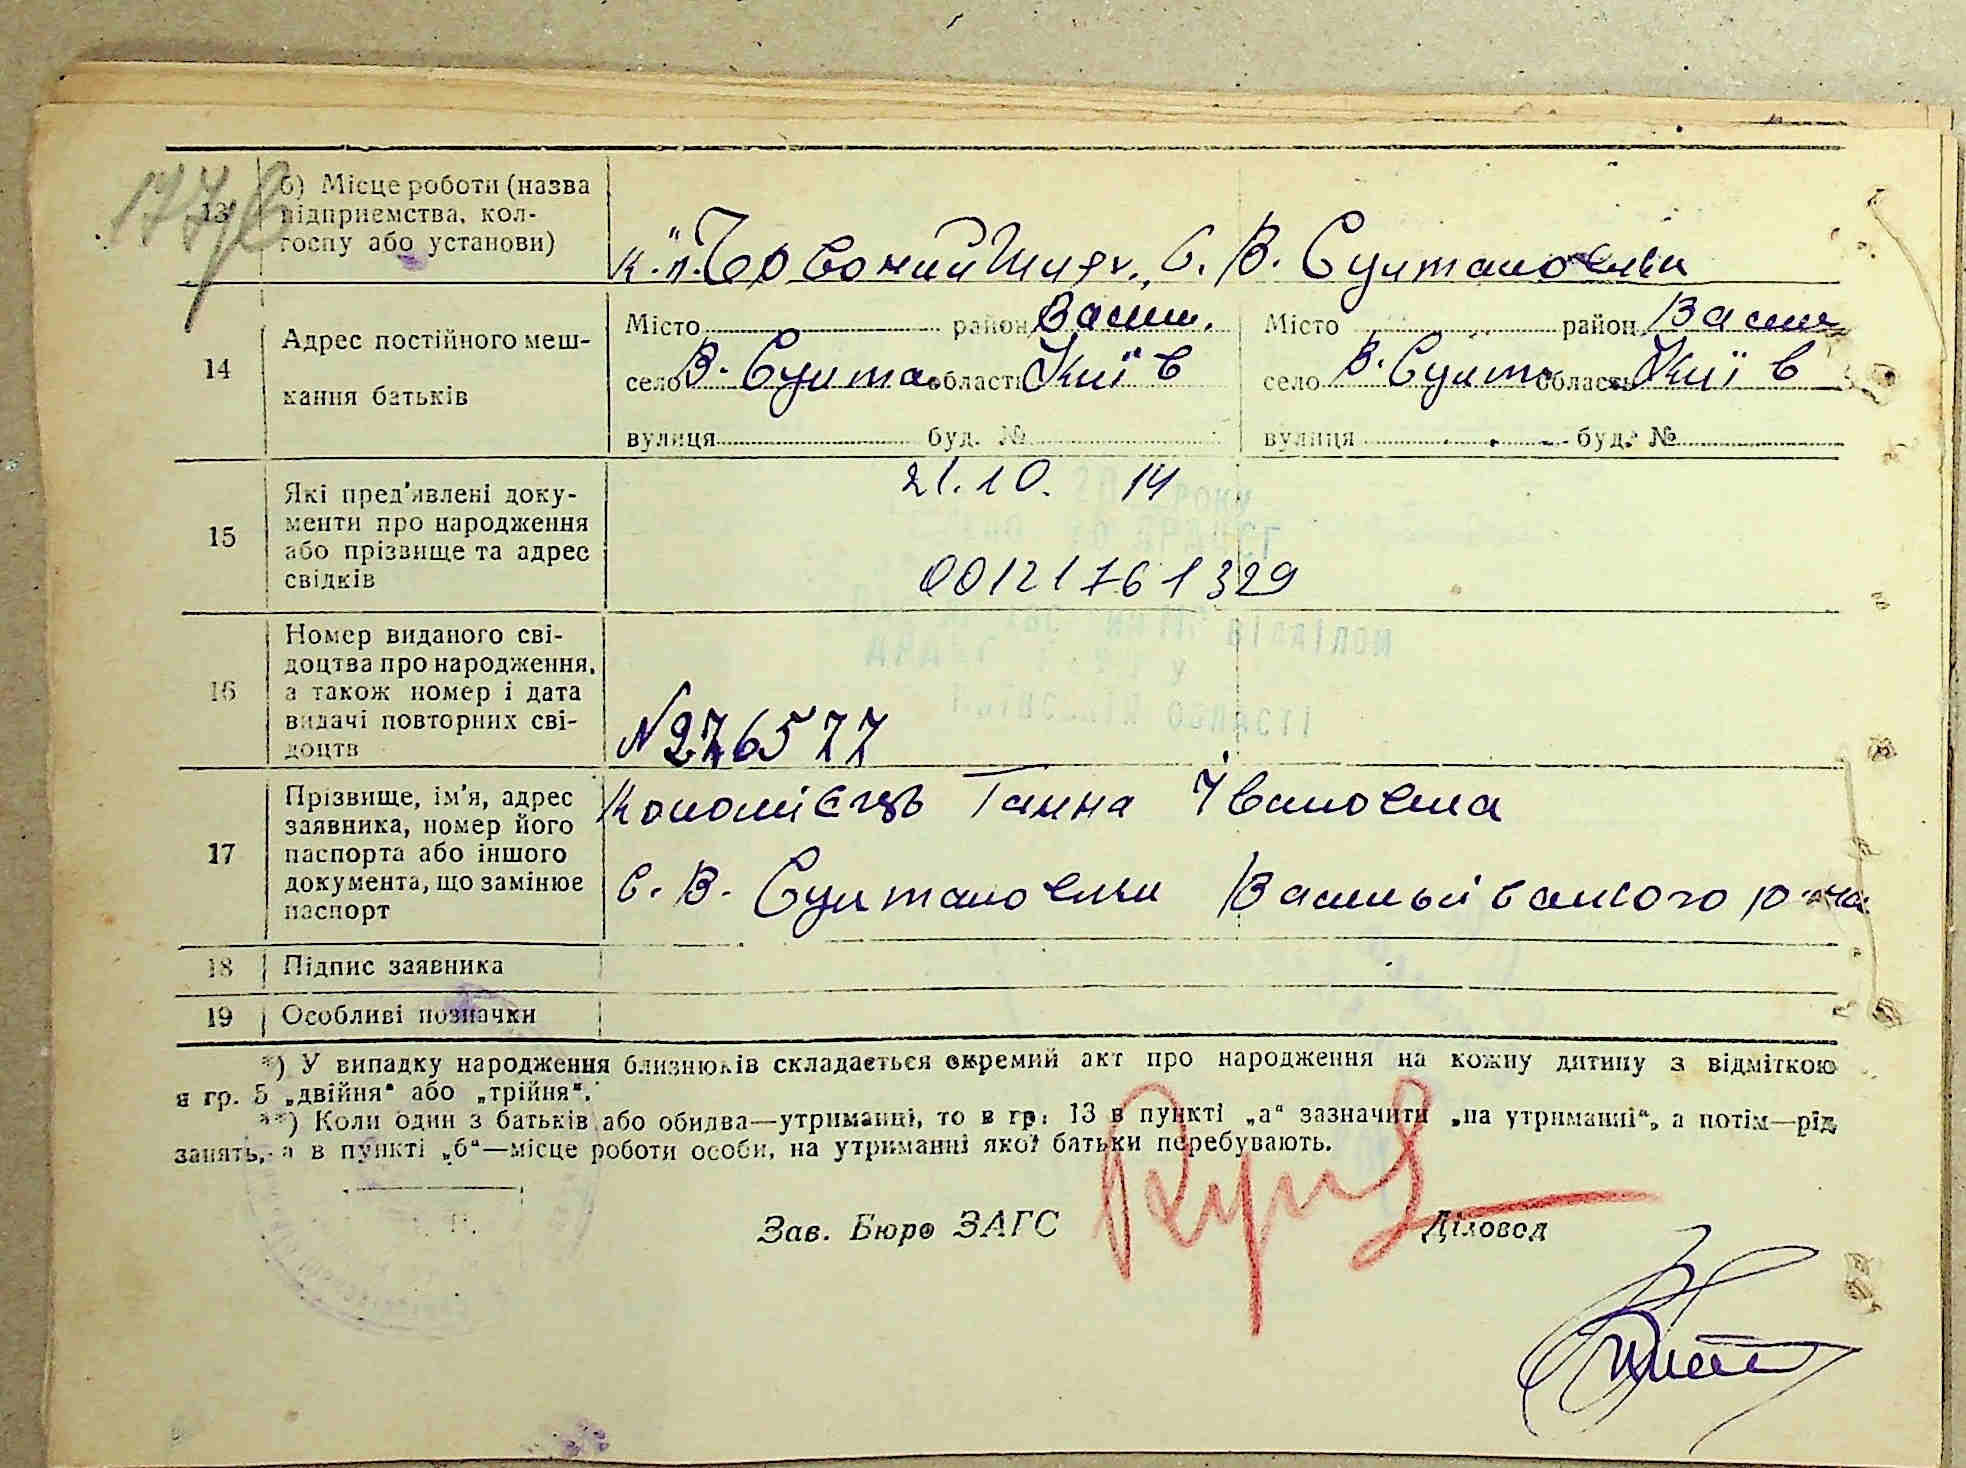 177/б
13 б) Місце роботи (назва
підприємства, кол-
госпу або установи)
к.п. "Червоний Шлях", с. В. Султановки
14 Адрес постійного меш-
кання батьків
Місто район Васил. Місто район Васил
село В. Султа область Київ село В. Султ область Київ
вулиця буд. № вулиця буд. №
15 Які пред'явлені доку-
менти про народження
або прізвище та адрес
свідків
21.10. 14
РОКУ
00121761329
16 Номер виданого сві-
доцтва про народження,
а також номер і дата
видачі повторних сві-
доцтв
ВІДДІЛОМ
У
ОБЛАСТІ
N 276577
17 Прізвище, ім'я, адрес
заявника, номер його
паспорта або іншого
документа, що замінює
паспорт
Коломієць Ганна Івановна
с. В. Султановки Васильківського р-на
18 Підпис заявника
19 Особливі позначки
*) У випадку народження близнюків складається окремий акт про народження на кожну дитину з відміткою
в гр. 5 „двійня“ або „трійня“.
**) Коли один з батьків або обидва—утриманці, то в гр. 13 в пункті „а“ зазначити „на утриманні“, а потім—рід
занять, а в пункті „б“—місце роботи особи, на утриманні якої батьки перебувають.
Зав. Бюро ЗАГС Діловод